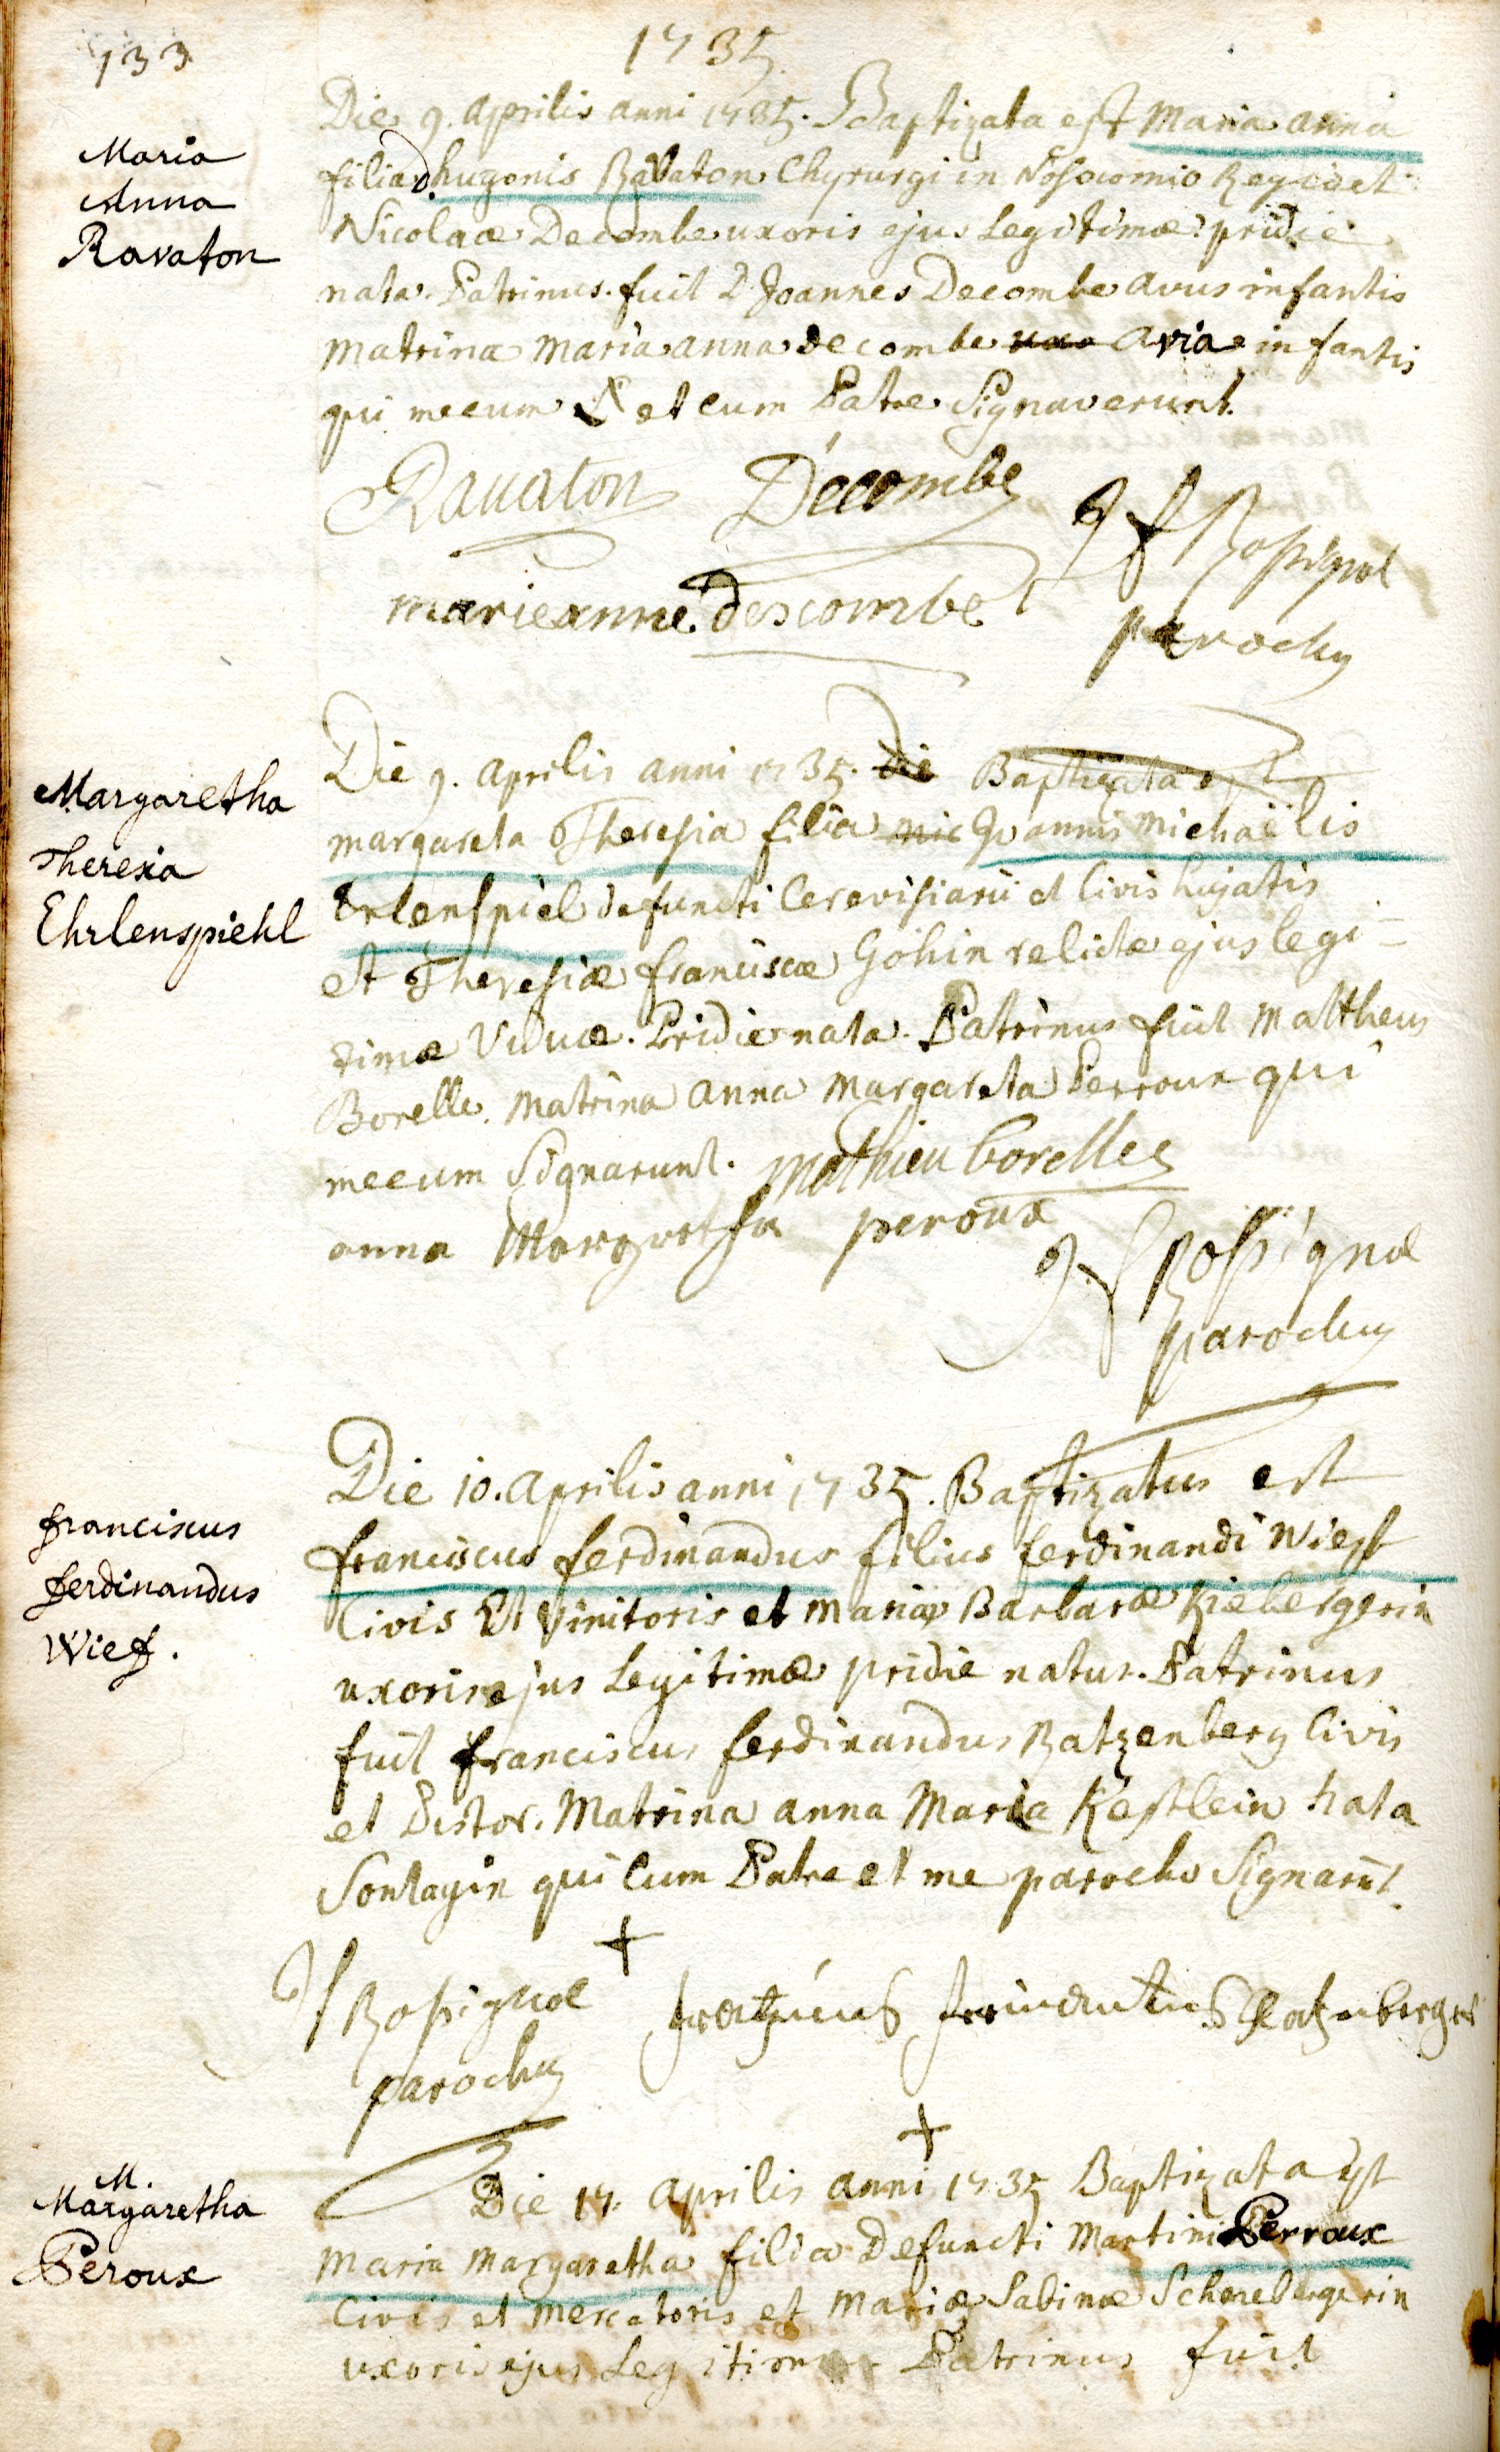 133
1735.
Maria
Anna
Ravaton
Die 9. Aprilis anni 1735. Baptizata est Maria anna
filia D. hugonis Ravaton Chyrurgi in Nosocomio Regio et
Nicolaæ Decombe uxoris ejus Legitimæ pridie
nata. Patrinus fuit D Joannes Decombe avus infantis
Matrina Maria anna decombe avia infantis
qui mecum et cum Patre Signaverunt.
Ravaton Decombe
marieanne descombe
J f Rossignol
parochus
Margaretha
Theresia
Ehrlenspiehl
Die 9. Aprilis anni 1735. die Baptizata est
margareta Theresia filia mic Joannis Michaëlis
Erlenspiel defuncti Cerevisiarii et Civis hujatis
et Theresiæ franciscæ Gohin relictæ ejus legi-
timæ Viduæ. Pridie nata. Patrinus fuit Mattheus
Borelle. Matrina anna Margareta Perroux qui
mecum Signarunt. Mathieu borelles
anna Margretha peroux
J f Rossignol
parochus
franciscus
ferdinandus
Wiest.
Die 10. Aprilis anni 1735. Baptizatus est
franciscus ferdinandus filius ferdinandi Wiest
Civis Et Vinitoris et Mariæ Barbaræ Riebergerin
uxoris ejus Legitimæ pridie natus. Patrinus
fuit franciscus ferdinandus Ratzenberg Civis
et Pistor. Matrina anna Maria Kestlein nata
Sontagin qui Cum Patre et me parocho Signarūt.
J f Rossignol
parochus
M.
Margaretha
Peroux
Die 17. Aprilis anni 1735 Baptizata est
Maria Margaretha filia Defuncti Martini Perroux
Civis et Mercatoris et Mariæ Sabinæ Schnebergerin
uxoris ejus Legitimæ Patrinus fuit